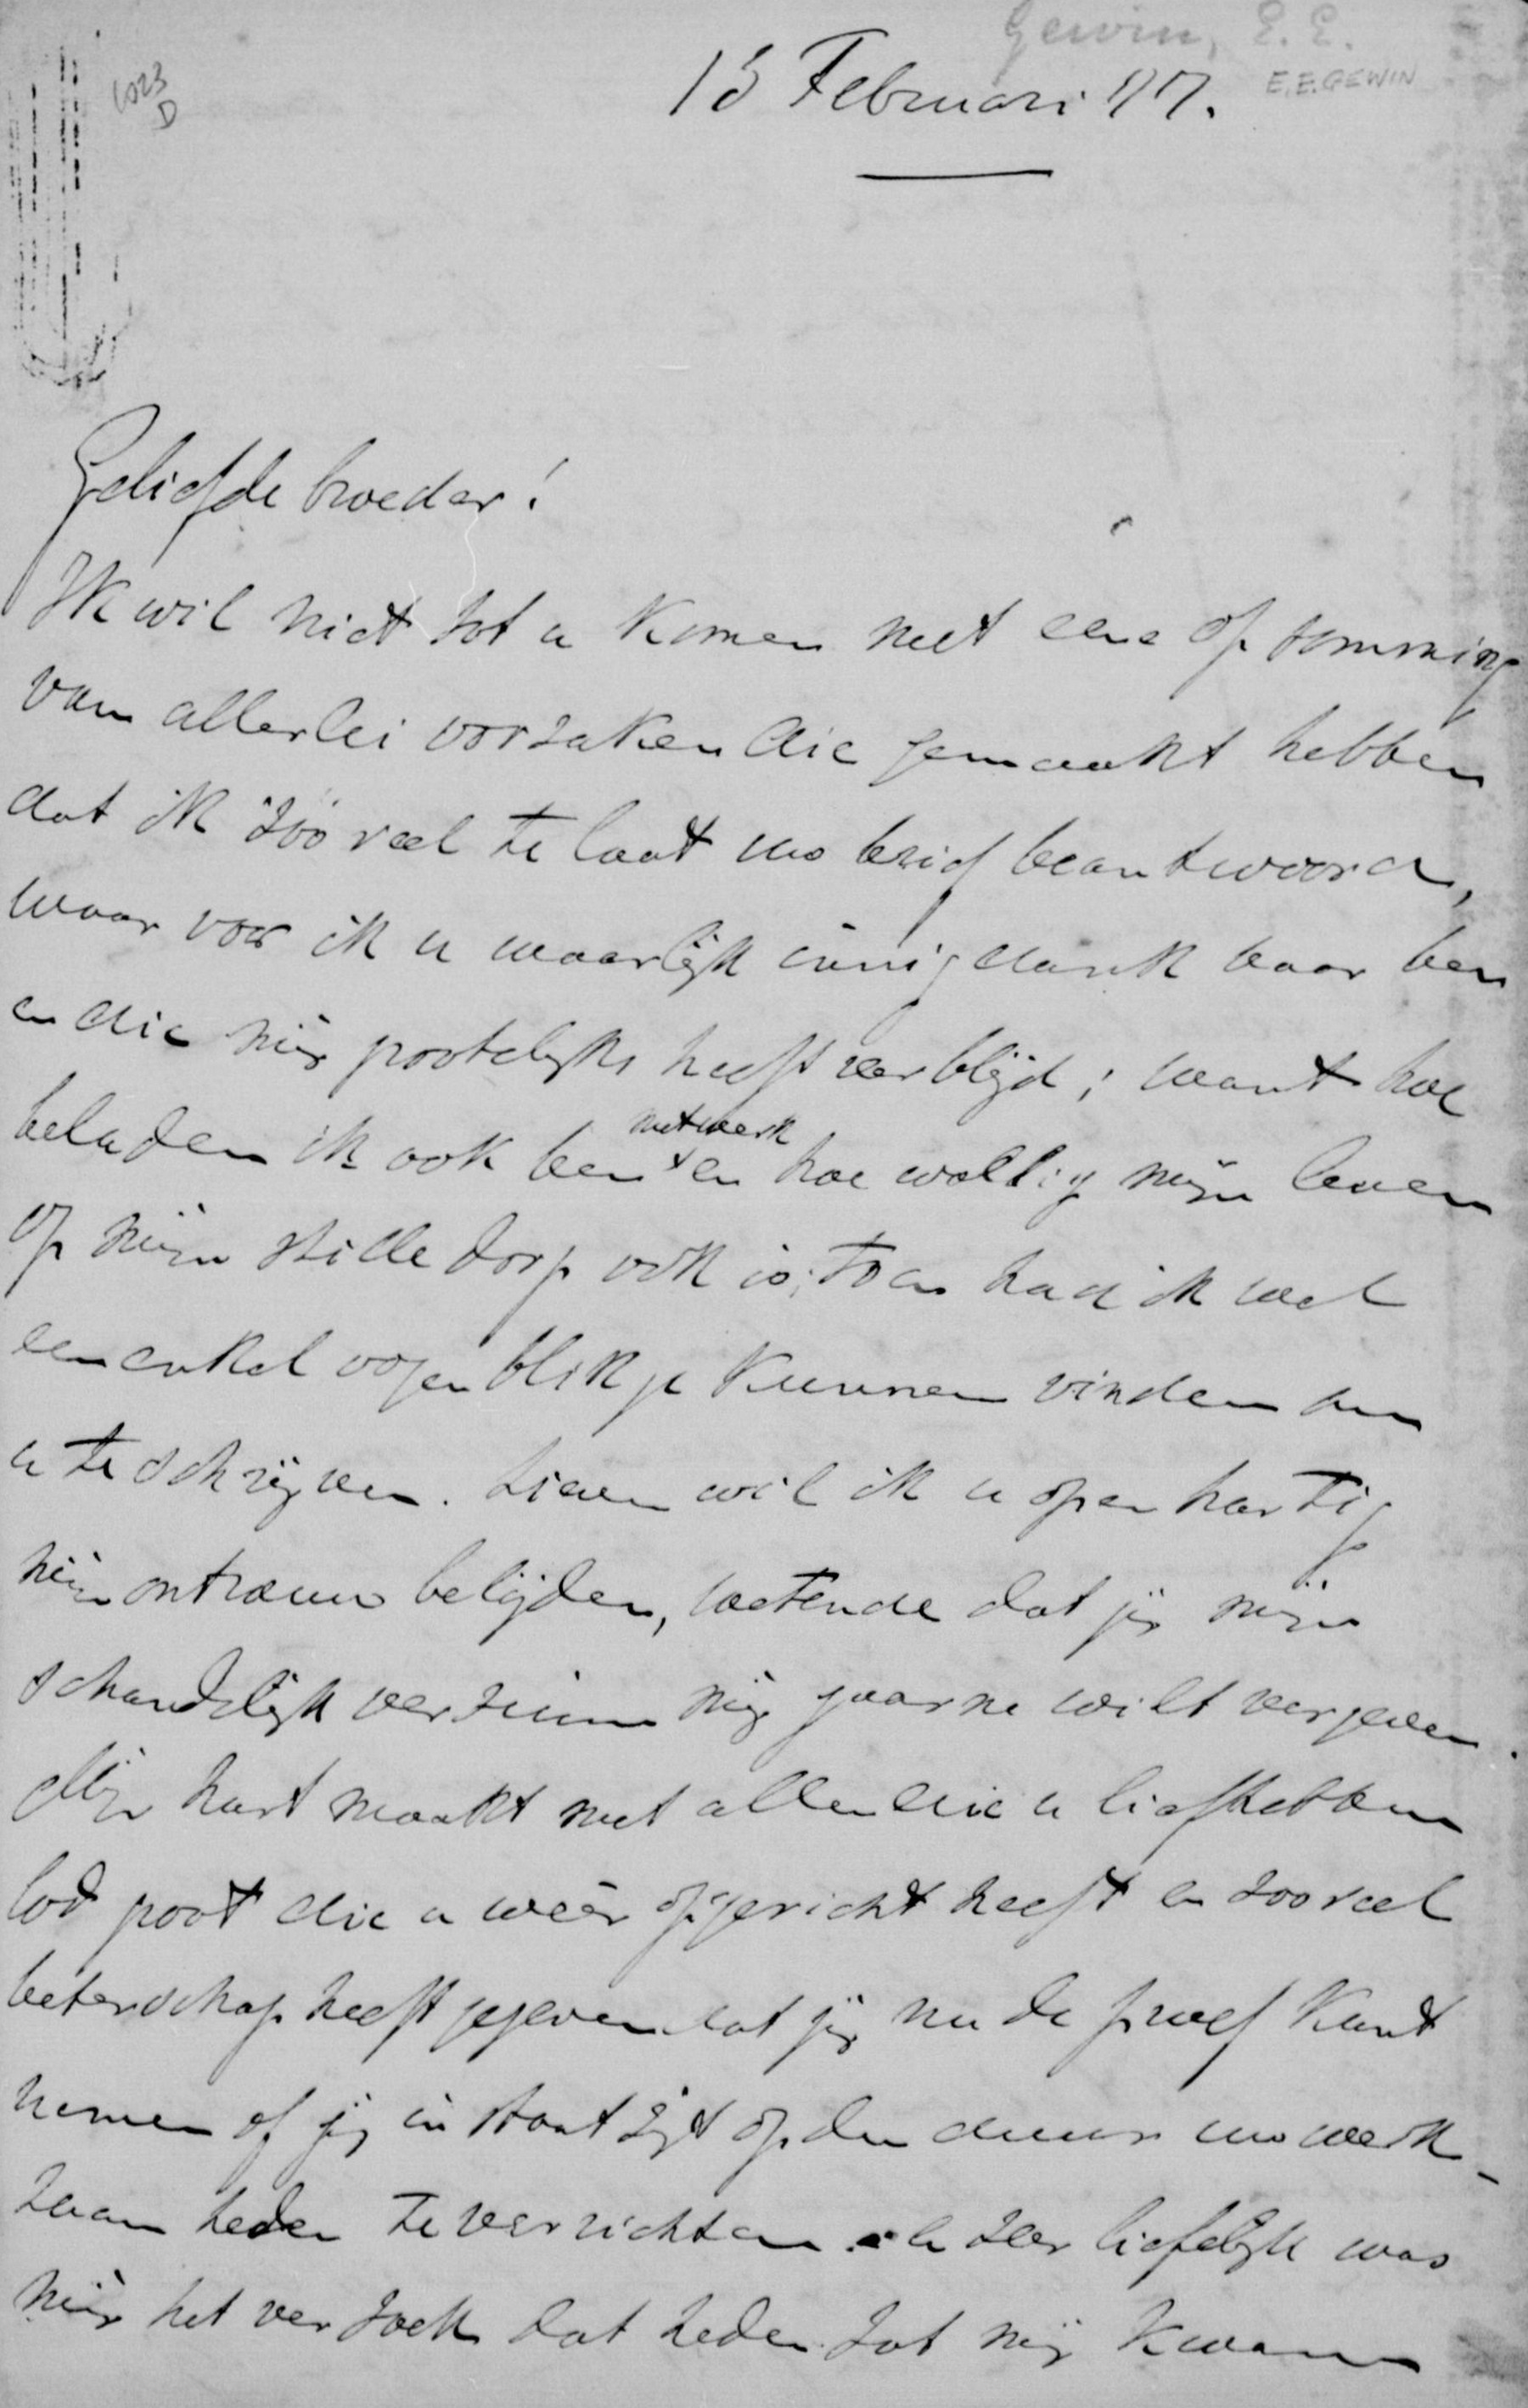 Gewin, E. E.
E. E. GEWIN
1023
D
15 Februari 77.
Geliefde broeder!
Ik wil niet tot u komen met eene opsomming
van allerlei oorzaken die gemaakt hebben
dat ik zóó veel te laat uw brief beantwoord,
waar voor ik u waarlijk innig dankbaar ben
en die mij grootelijks heeft verblijd; want hoe
beladen ik ook ben met werk en hoe woelig mijn leven
op mijn stille dorp ook is, toch had ik wel
een enkel oogenblikje kunnen vinden om
u te schrijven. Liever wil ik u openhartig
mijn ontrouw belijden, wetende dat jij mijn
schandelijk verzuim mij gaarne wilt vergeven.
Mijn hart maakt met allen die u liefhebben
God groot die u weêr opgericht heeft en zooveel
beterschap heeft gegeven dat jij nu de proef kunt
nemen of jij in staat zijt op den duur uw werk-
zaamheden te verrichten. en zeer liefelijk was
mij het verzoek dat heden tot mij kwam